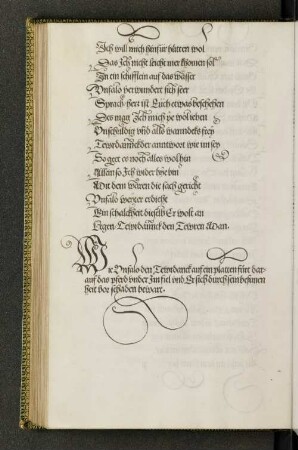 Ich will mich hinfür hütten wol
Das Ich nicht leicht mer khomen sol
In ein schifflein auf das wasser
Unfalo verwundert sich seer
Sprach Herr ist Euch etwas beschehen
Des mag Ich mich wol iehen
Unschuldig und alls wanndels frey
Tewrdannckh der anntwort wie im sey
So geet es noch alles wol hin
Allein so Ich wider bin
Mit dem waren die sach gericht
Unfalo weiter erdicht
Ein schalckheit dieselb Er wolt an
Legen Tewrdannck den Tewren Man.
Wie Unfalo den Tewrdanck auf ein platten fürt dar-
auf das pferd under Im fiel und Er sich durch sein besynnen
heit vor schaden bewart.